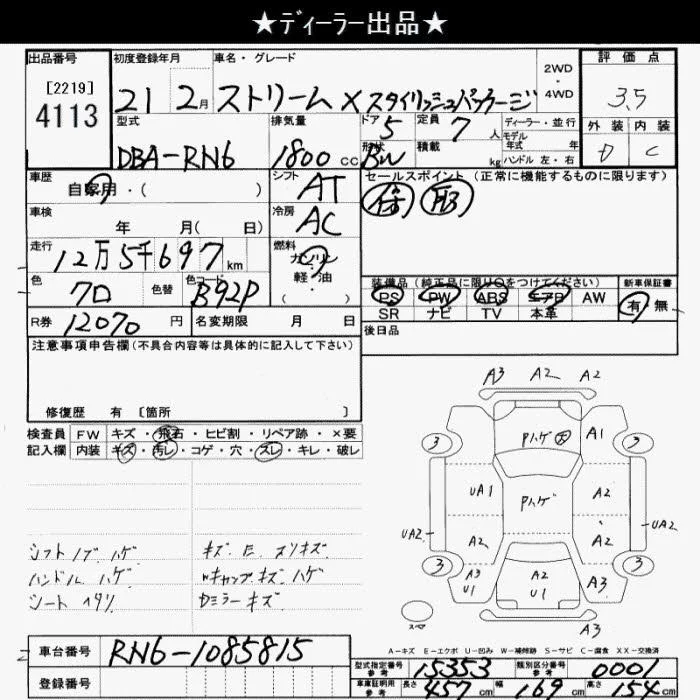 ★ディーラー出品★
出品番号
[2219]
4113
初度登録年月
21 2月
車名・グレード
ストリーム X スタイリッシュパッケージ
2WD
・
4WD
評価点
3.5
外装 内装
D C
型式
DBA-RN6
排気量
1800 cc
ドア
5
形状
BW
定員
7 人
積載
kg
ディーラー・並行
モデル
年式 年
ハンドル 左・右
車歴
自家用・( )
シフト
AT
セールスポイント(正常に機能するものに限ります)
車検
年 月( 日)
冷房
AC
走行
12万5千697 km
燃料
ガソリン
軽・油
( ・ )
色
クロ
色替
色コード
B92P
装備品(純正品に限り○をつけてください)
PS PW ABS エアB AW
SR ナビ TV 本革
新車保証書
有 無
R券
12070 円
名変期限 月 日
後日品
注意事項申告欄(不具合内容等は具体的に記入して下さい)
修復歴 有 [箇所 ]
検査員
記入欄
FW キズ・飛石・ヒビ割・リペア跡・×要
内装 キズ・汚レ・コゲ・穴・スレ・キレ・破レ
シフトノブ ハゲ
ハンドル ハゲ
シート ヘタリ
キズ E スリキズ
Wキャップキズ ハゲ
Dミラーキズ
A3 A2 A2
Pハゲ
A1
3 3
UA1
Pハゲ
A2
UA2
UA2
A2
A2
3 3
A3
U1
A2
U1
A3
スペア
A3
A-キズ E-エクボ U-凹み W-補修跡 S-サビ C-腐食 XX-交換済
車台番号
RN6-1085815
登録番号
型式指定番号
参考
15353
類別区分番号
参考
0001
車庫証明用
参考
長さ 457 cm
幅 169 cm
高さ 154 cm